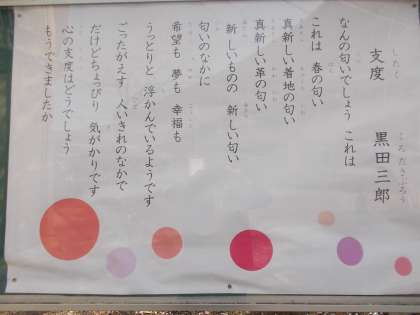 支度 黒田三郎
したく くろださぶろう
なんの匂いでしょう これは
これは 春の匂い
真新しい着地の匂い
真新しい革の匂い
新しいものの 新しい匂い
匂いのなかに
希望も 夢も 幸福も
うっとりと 浮かんでいるようです
ごったがえす 人いきれのなかで
だけどちょっぴり 気がかりです
心の支度はどうでしょう
もうできましたか